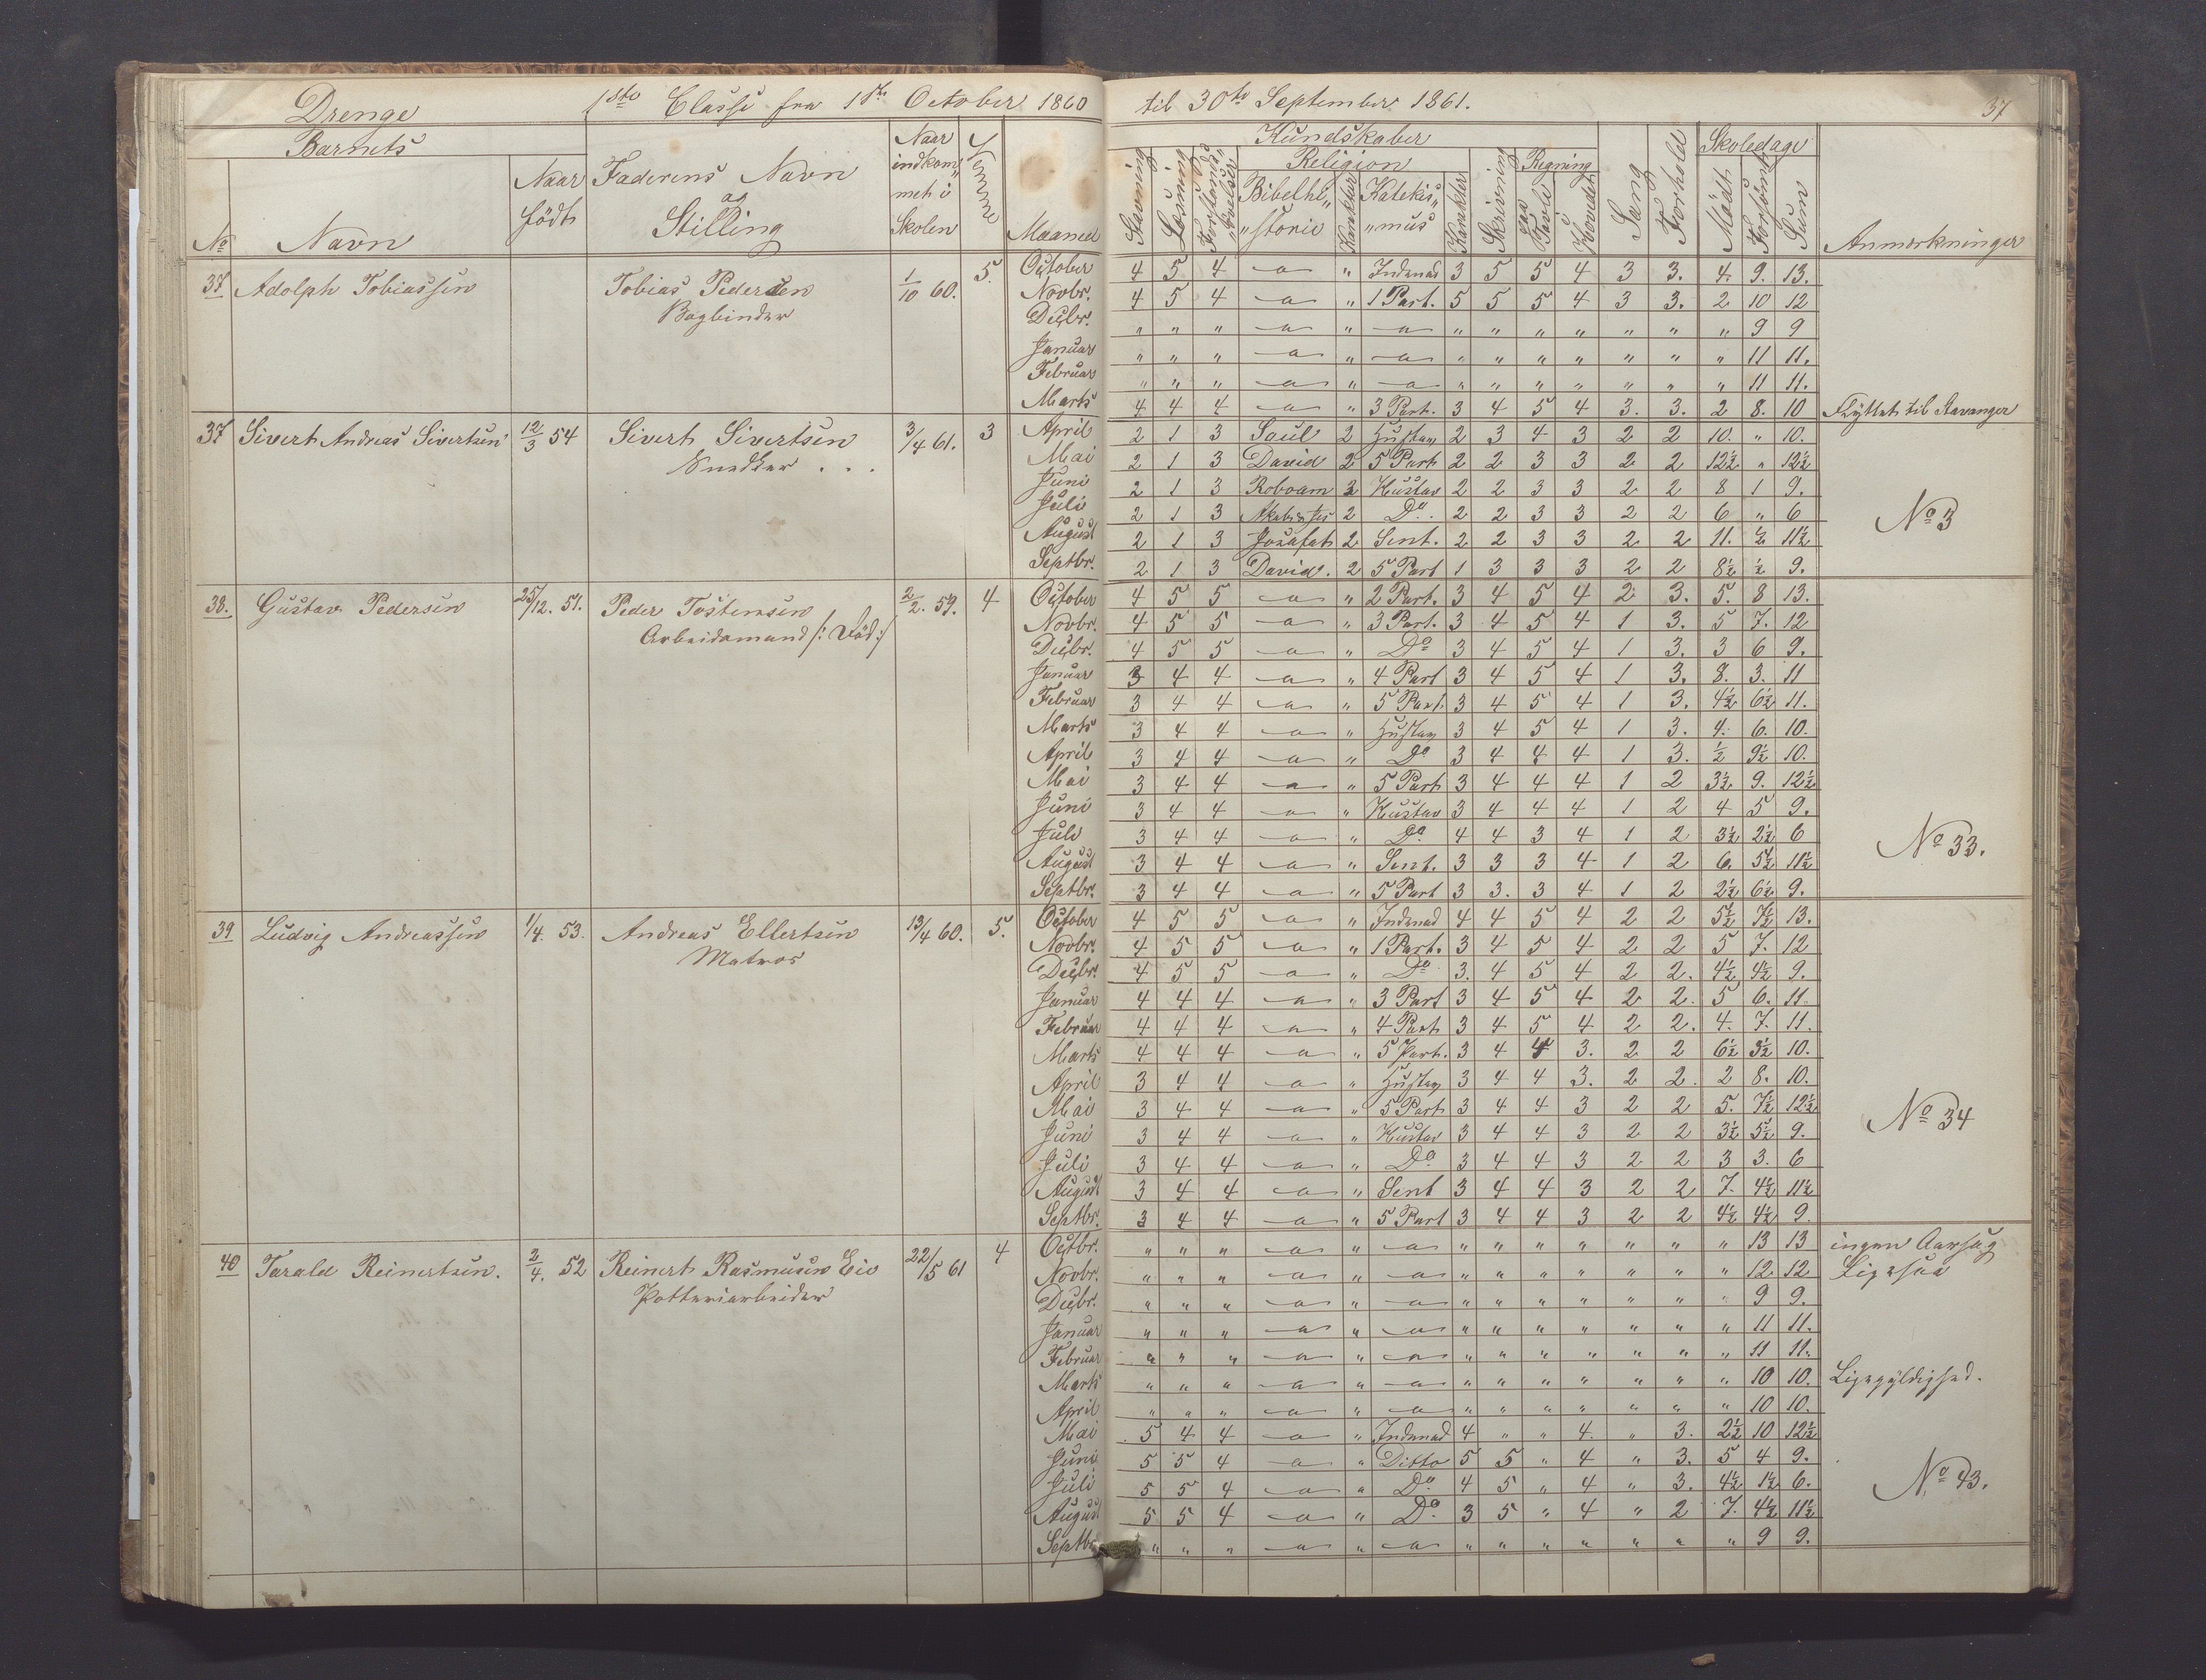 Drenge 1ste Classe fra 1ste October 1860 til 30te September 1861. 37
Barnets Faderens Navn og Stilling Naar indkommet i Skolen Maaned Kundskaber Skoledage Anmerkninger
No Navn Naar født Stavning Læsning Religion Bibelhistorie Karakter Katekismus Karakter Skrivning Regning Paa Tavle i Hovedet Sang Forhold Mødt Forsømt Sum
37 Adolph Tobiassen Tobias Pedersen 1/10 60. 5. October 4 5 4 " 3 5 5 4 3 3. 4. 9. 13.
Bogbinder Novbr. 4 5 4 " 1 Part. 5 5 5 4 3 3. 2 10 12
Decbr. " " " " " " " " " " " 9 9
Januar " " " " " " " " " " " 11 11.
Februar " " " " " " " " " " " 11 11.
Marts 4 4 4 " 3 Part. 3 4 5 4 3. 3. 2 8. 10 Flyttet til Stavanger
37 Sivert Andreas Sivertsen 12/3 54 Sivert Sivertsen 3/4 61. 3 April 2 1 3 Saul 2 2 3 4 3 2 2 10. " 10.
Snedker Mai 2 1 3 David 2 5 Part 2 2 3 3 2 2 12½ " 12½
Juni 2 1 3 Roboam 2 Hustav 2 2 3 3 2 2 8 1 9.
Juli 2 1 3 2 Do. 2 2 3 3 2 2 6 " 6 No 3
August 2 1 3 Josafat 2 Sent. 2 2 3 3 2 2 11. ½ 11½
Septbr. 2 1 3 David. 2 5 Part 1 3 3 3 2 2 8½ ½ 9.
38. Gustav Pedersen 25/12. 51. Peder Tostensen 2/2. 59. 4 October 4 5 5 " 2 Part. 3 4 5 4 2 3. 5. 8 13.
Arbeidsmand /: Død :/ Novbr. 4 5 5 " 3 Part. 3 4 5 4 1 3. 5 7. 12
Decbr. 4 5 5 " Do 3 4 5 4 1 3. 3 6 9.
Januar 3 4 4 " 4 Part 3 4 5 4 1 3. 8. 3. 11
Februar 3 4 4 " 5 Part. 3 4 5 4 1 3. 4½ 6½ 11.
Marts 3 4 4 " 3 4 5 4 1 3. 4. 6. 10.
April 3 4 4 " Do 3 4 4 4 1 3. ½ 9½ 10.
Mai 3 4 4 " 5 Part 3 4 4 4 1 2 3½ 9. 12½
Juni 3 4 4 " Hustav 3 4 4 4 1 2 4 5 9.
Juli 3 4 4 " Do. 4 4 3 4 1 2 3½ 2½ 6 No 33.
August 3 4 4 " Sent. 3 3 3 4 1 2 6. 5½ 11½
Septbr. 3 4 4 " 5 Part 3 3. 3 4 1 2 2½ 6½ 9.
39 Ludvig Andreassen 1/4. 53. Andreas Ellertsen 13/4 60. 5. October 4 5 5 " 4 4 5 4 2 2 5½ 7½ 13.
Matros Novbr. 4 5 5 " 1 Part. 3 4 5 4 2 2 5 7. 12
Decbr. 4 5 5 " Do 3. 4 5 4 2 2. 4½ 4½ 9.
Januar 4 4 4 " 3 Part 3 4 5 4 2 2. 5 6. 11.
Februar 4 4 4 " 4 Part 3 4 5 4 2 2. 4. 7. 11.
Marts 4 4 4 " 5 Part. 3 4 4 3. 2 2 6½ 3½ 10.
April 3 4 4 " 3 4 4 3. 2 2. 2 8. 10.
Mai 3 4 4 " 5 Part 3 4 4 3 2 2 5. 7½ 12½
Juni 3 4 4 " Hustav 3 4 4 3 2 2 3½ 5½ 9. No 34
Juli 3 4 4 " Do. 3 4 4 3 2 2 3 3. 6
August 3 4 4 " Sent 3 4 4 3 2 2 7. 4½ 11½
Septbr. 3 4 4 " 5 Part 3 4 4 3 2 2 4½ 4½ 9.
40 Tarald Reinertsen. 2/4. 52 Reinert Rasmusen Eie 22/5 61 4 Octbr. " " " " " " " " " " " 13 13 ingen Aarsag
Potteriarbeider Novbr. " " " " " " " " " " " 12 12 Ligesaa
Decbr. " " " " " " " " " " " 9 9.
Januar " " " " " " " " " " " 11 11.
Februar " " " " " " " " " " " 11 11.
Marts " " " " " " " " " " " 10 10. Ligegyldighed.
April " " " " " " " " " " " 10 10.
Mai 5 4 4 " 4 " " 4. " 3. 2½ 10 12½
Juni 5 5 4 " Ditto 5 5 " 4 " 3. 5 4 9.
Juli 5 5 4 " Do. 4 5 " 4 " 3. 4½ 1½ 6. No 43.
August 5 5 4 " Do. 3 5 " 4 " 2 7. 4½ 11½
Septbr. " " " " " " " " " " " 9 9.